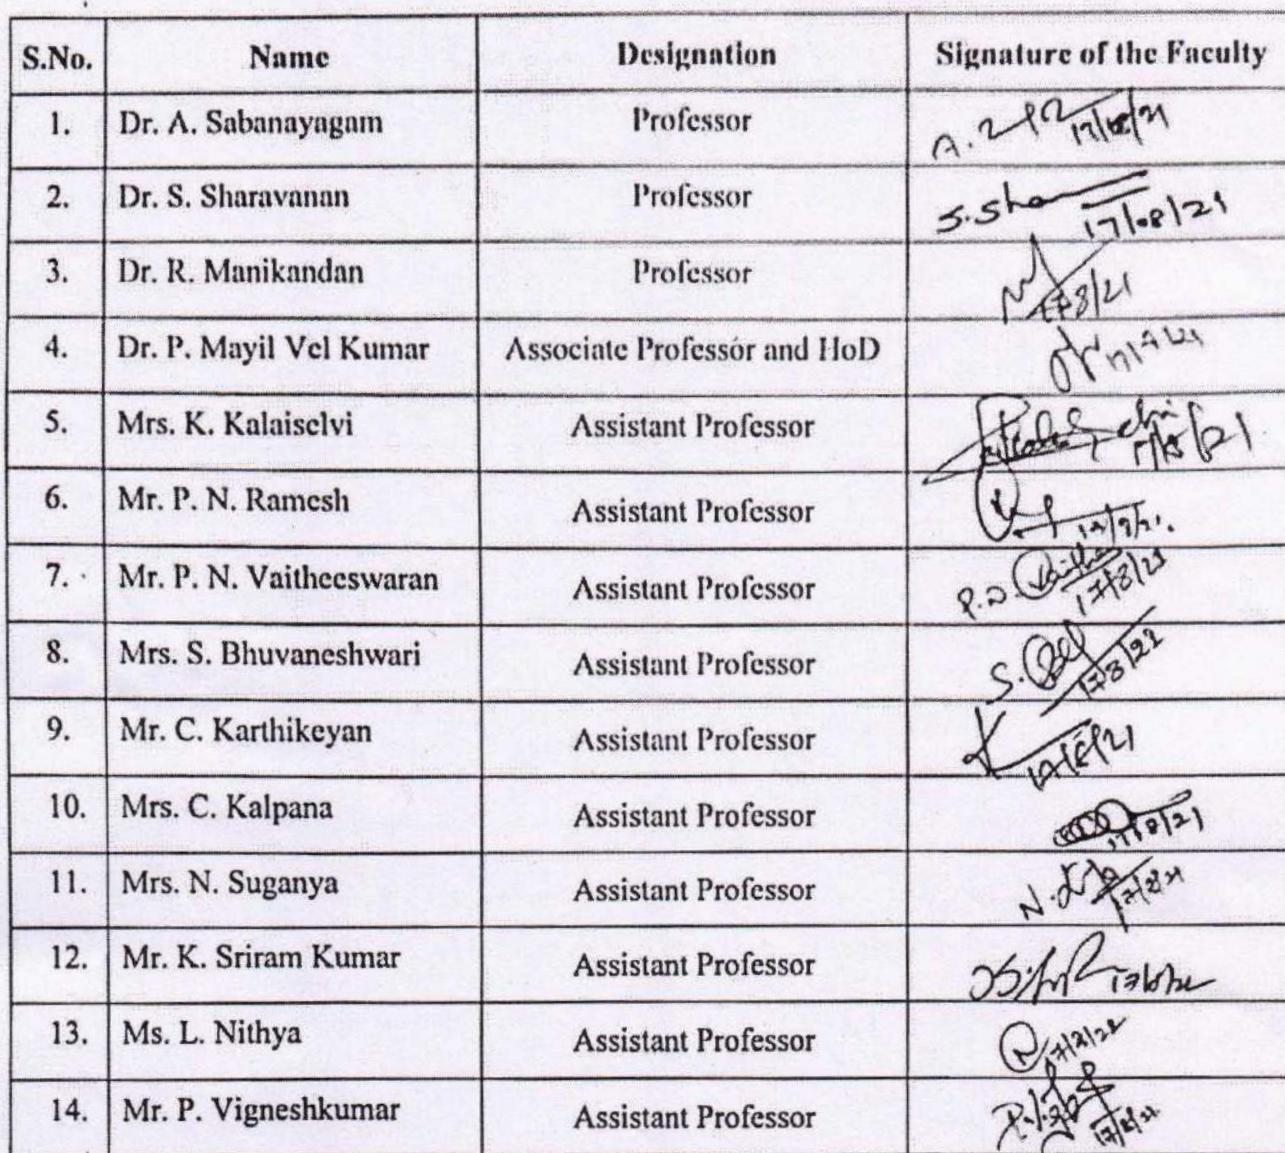 S.No. Name Designation Signature of the Faculty
1. Dr. A. Sabanayagam Professor 17/08/21
2. Dr. S. Sharavanan Professor S.Sha 17/08/21
3. Dr. R. Manikandan Professor 17/8/21
4. Dr. P. Mayil Vel Kumar Associate Professor and HoD
5. Mrs. K. Kalaiselvi Assistant Professor
6. Mr. P. N. Ramesh Assistant Professor
7. Mr. P. N. Vaitheeswaran Assistant Professor 17/8/21
8. Mrs. S. Bhuvaneshwari Assistant Professor
9. Mr. C. Karthikeyan Assistant Professor 17/8/21
10. Mrs. C. Kalpana Assistant Professor 17/8/21
11. Mrs. N. Suganya Assistant Professor 17/8/21
12. Mr. K. Sriram Kumar Assistant Professor
13. Ms. L. Nithya Assistant Professor
14. Mr. P. Vigneshkumar Assistant Professor